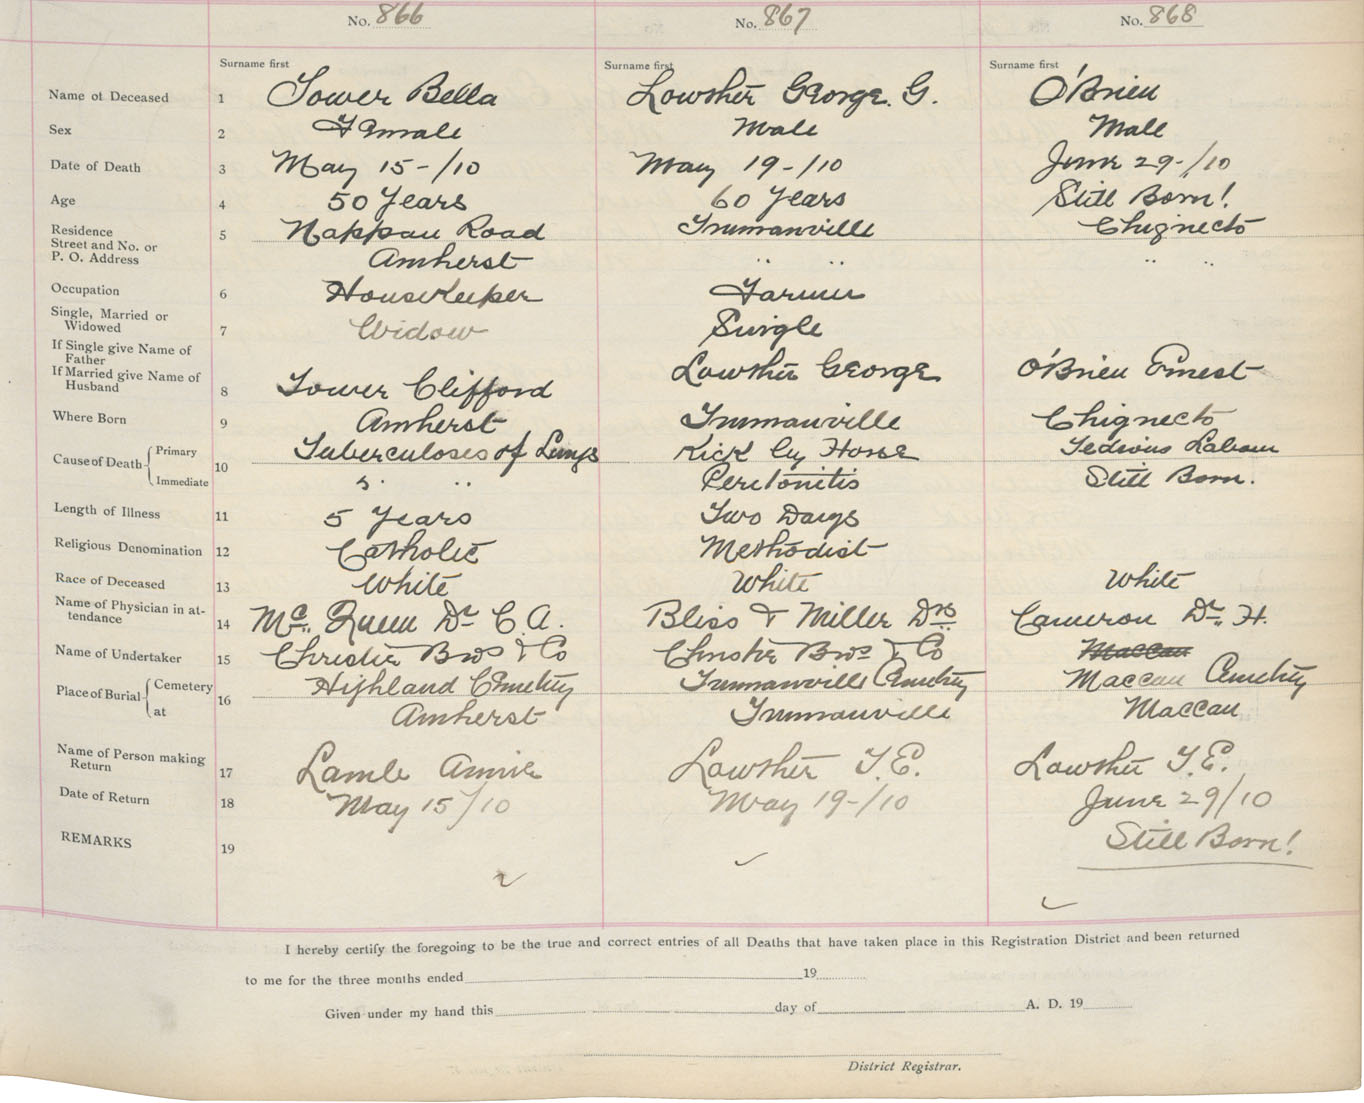 No. 866 No. 867 No. 868
Surname first Surname first Surname first
Name of Deceased 1 Tower Bella Lowther George. G. O'Brien
Sex 2 Female Male Male
Date of Death 3 May 15-/10 May 19-/10 June 29-/10
Age 4 50 Years 60 Years Still Born!
Residence 5 Nappan Road Truemanville Chignecto
Street and No. or
P. O. Address Amherst " " " "
Occupation 6 Housekeeper Farmer
Single, Married or
Widowed 7 Widow Single
If Single give Name of
Father Lowther George O'Brien Ernest
If Married give Name of
Husband 8 Tower Clifford
Where Born 9 Amherst Truemanville Chignecto
Cause of Death Primary 10 Tuberculoses of Lungs Kick by Horse Tedious Labour
Immediate " " Peritonitis Still Born.
Length of Illness 11 5 Years Two Days
Religious Denomination 12 Catholic Methodist
Race of Deceased 13 White White White
Name of Physician in at-
tendance 14 Mc. Queen Dr C. A. Bliss & Miller Drs Cameron Dr. H.
Name of Undertaker 15 Christie Bros & Co Christie Bros & Co Maccan
Place of Burial Cemetery 16 Highland Cemetery Truemanville Cemetery Maccan Cemetery
at Amherst Truemanville Maccan
Name of Person making
Return 17 Lamb Annie Lowther T. E. Lowther T. E.
Date of Return 18 May 15/10 May 19-/10 June 29/10
REMARKS 19 Still Born!
I hereby certify the foregoing to be the true and correct entries of all Deaths that have taken place in this Registration District and been returned
to me for the three months ended 19
Given under my hand this day of A. D. 19
District Registrar.